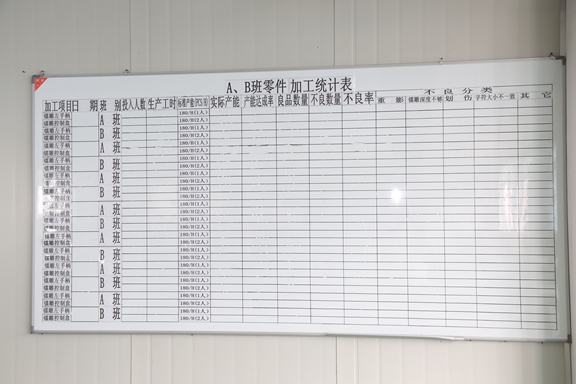 A、B班零件 加工统计表
不良分类
加工项目 日期 班别 投入人数 生产工时 标准产能(PCS/H) 实际产能 产能达成率 良品数量 不良数量 不良率 重影 镭雕深度不够 划伤 字符大小不一致 其它
镭雕左手柄 A班 180/H(1人)
镭雕控制盒 180/H(2人)
镭雕左手柄 B班 180/H(1人)
镭雕控制盒 180/H(2人)
镭雕左手柄 A班 180/H(1人)
镭雕控制盒 180/H(2人)
镭雕左手柄 B班 180/H(1人)
镭雕控制盒 180/H(2人)
镭雕左手柄 A班 180/H(1人)
镭雕控制盒 180/H(2人)
镭雕左手柄 B班 180/H(1人)
镭雕控制盒 180/H(2人)
镭雕左手柄 A班 180/H(1人)
镭雕控制盒 180/H(2人)
镭雕左手柄 B班 180/H(1人)
镭雕控制盒 180/H(2人)
镭雕左手柄 A班 180/H(1人)
镭雕控制盒 180/H(2人)
镭雕左手柄 B班 180/H(1人)
镭雕控制盒 180/H(2人)
镭雕左手柄 A班 180/H(1人)
镭雕控制盒 180/H(2人)
镭雕左手柄 B班 180/H(1人)
镭雕控制盒 180/H(2人)
镭雕左手柄 A班 180/H(1人)
镭雕控制盒 180/H(2人)
镭雕左手柄 B班 180/H(1人)
镭雕控制盒 180/H(2人)